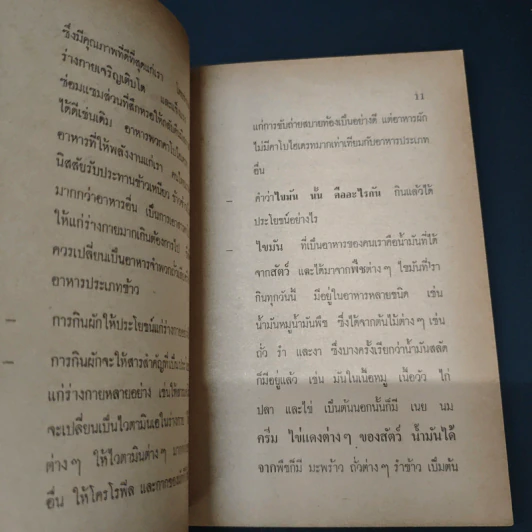 ซึ่งมีคุณภาพที่ดีที่สุดแก่เรา
ร่างกายเจริญเติบโต
ซ่อมแซมส่วนที่สึกหรอให้กลับคืน
ได้ดีเช่นเดิม อาหารพวกคาโบไฮเดร
อาหารที่ให้พลังงานแก่เรา
นิสสัยรับประทานข้าวเหนียว ข้าวจ้าว
มากกว่าอาหารอื่น เป็นการเอา
ให้แก่ร่างกายมากเกินต้องการไป
ควรเปลี่ยนเป็นอาหารจำพวก
อาหารประเภทข้าว
– การกินผักให้ประโยชน์แก่ร่างกาย
– การกินผักจะให้สารสำคัญที่เป็นประ
แก่ร่างกายหลายอย่าง เช่นได้
จะเปลี่ยนเป็นไวตามินเอในร่างกาย
ต่างๆ ให้ไวตามินต่างๆ มาก
อื่น ให้โครโรฟิล และกากของ
11
แก่การขับถ่ายสบายท้องเป็นอย่างดี แต่อาหารผัก
ไม่มีคาโบไฮเดรทมากเท่าเทียมกับอาหารประเภท
อื่น
– คำว่าไขมัน นั้น คืออะไรกัน กินแล้วได้
ประโยชน์อย่างไร
– ไขมัน ที่เป็นอาหารของคนเราคือน้ำมันที่ได้
จากสัตว์ และได้มาจากพืชต่างๆ ไขมันที่เรา
กินทุกวันนี้ มีอยู่ในอาหารหลายชนิด เช่น
น้ำมันหมูน้ำมันพืช ซึ่งได้จากต้นไม้ต่างๆ เช่น
ถั่ว รำ และงา ซึ่งบางครั้งเรียกว่าน้ำมันสลัด
ก็มีอยู่แล้ว เช่น มันในเนื้อหมู เนื้อวัว ไก่
ปลา และไข่ เป็นต้นนอกนั้นก็มี เนย นม
ครีม ไข่แดงต่างๆ ของสัตว์ น้ำมันได้
จากพืชก็มี มะพร้าว ถั่วต่างๆ รำข้าว เป็นต้น